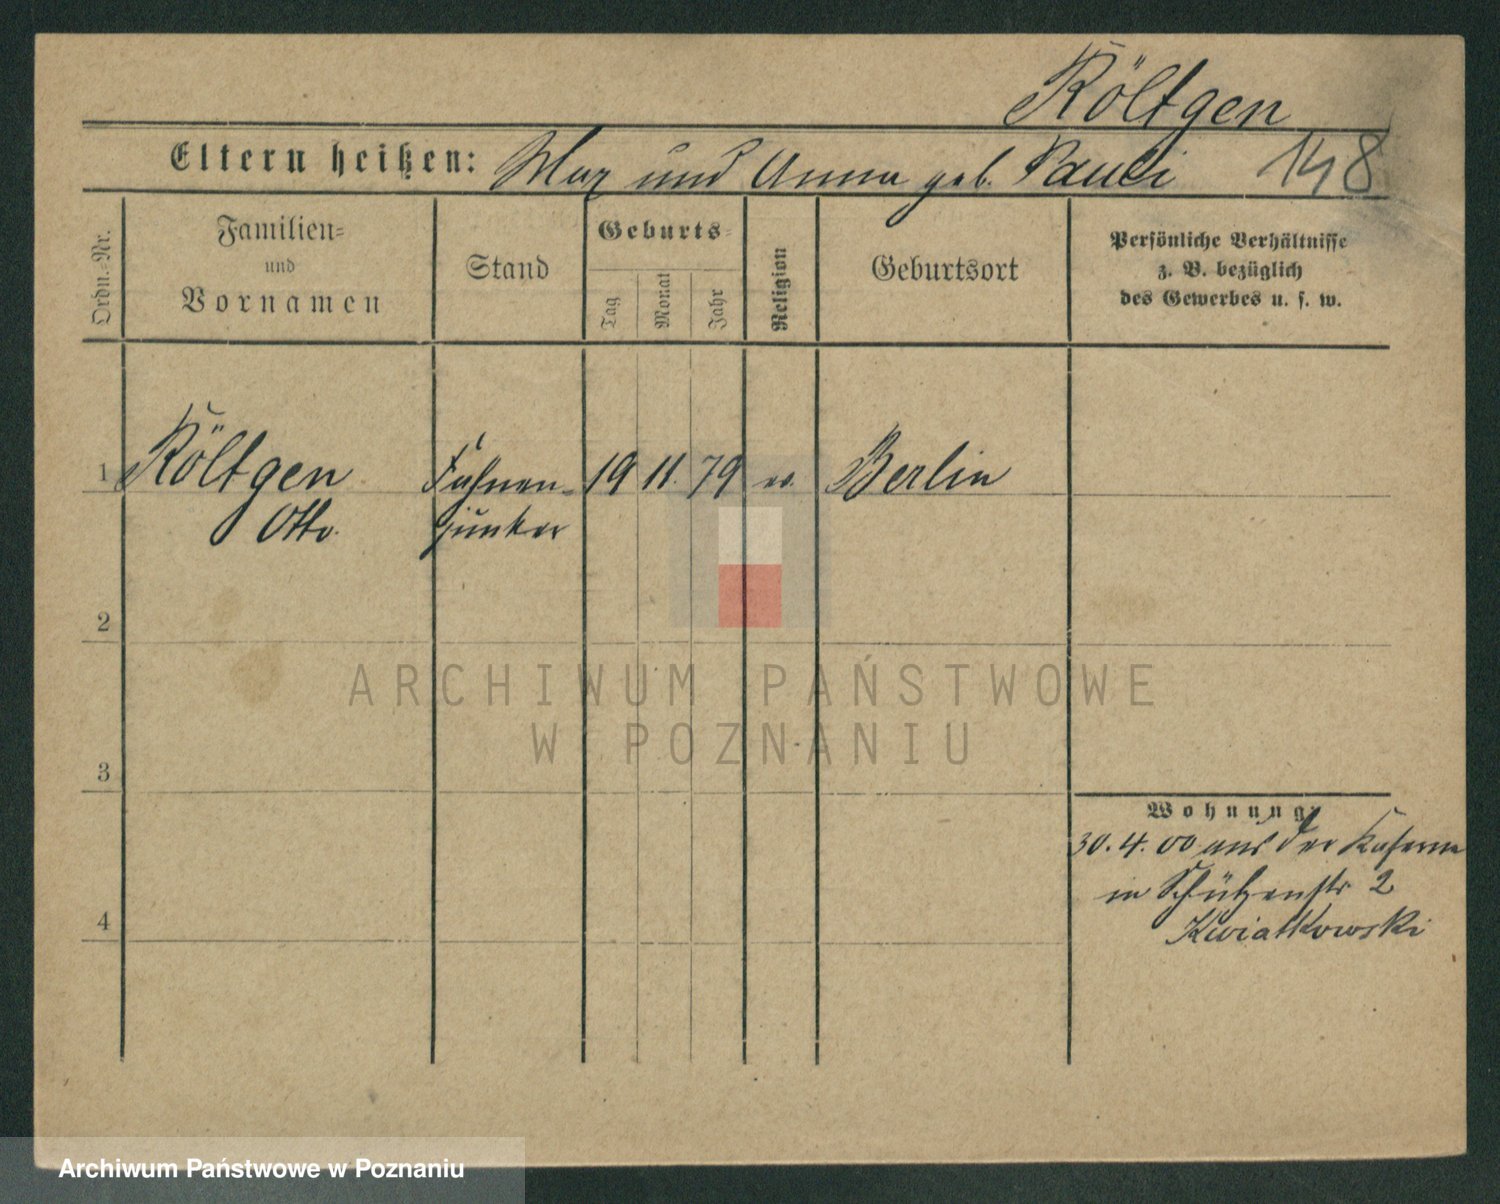 Röltgen
Eltern heißen: Max und Anna geb. Pauli 148
Ordn.-Nr.
Familien-
und
Vornamen
Stand
Geburts-
Tag
Monat
Jahr
Religion
Geburtsort
Persönliche Verhältnisse
z. B. bezüglich
des Gewerbes u. s. w.
1 Röltgen Fahnen- 19 11. 79 ev. Berlin
Otto. junker
2
ARCHIWUM PAŃSTWOWE
W POZNANIU
3
Wohnung:
30. 4. 00 aus der Kaserne
in Schützenstr 2
4
Kwiatkowski
Archiwum Państwowe w Poznaniu